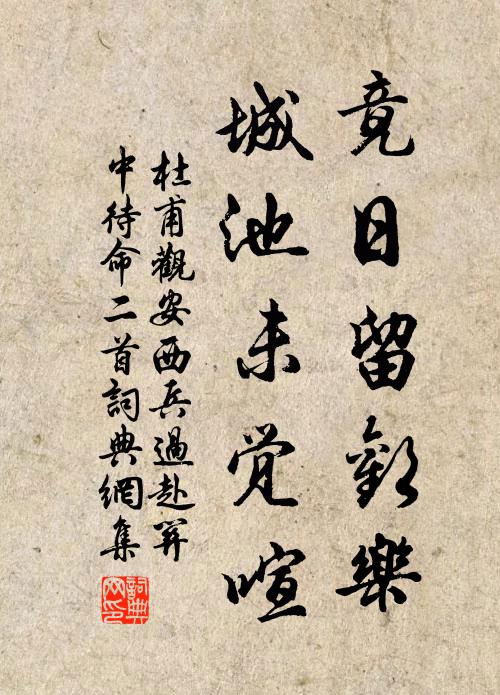 竟日留歡樂
城池未觉喧
杜甫觀安西兵過赴關
中待命二首詞典網集
詞典
网印